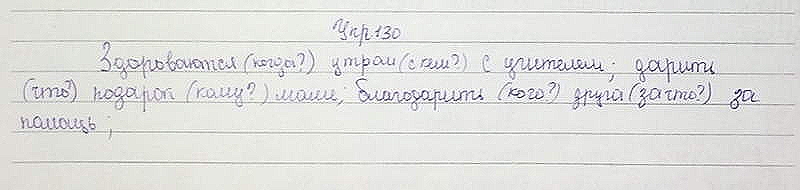 Упр.130
Здороваются (когда?) утром (с кем?) с учителем; дарить
(что?) подарок (кому?) маме; благодарить (кого?) друга (за что?) за
помощь;